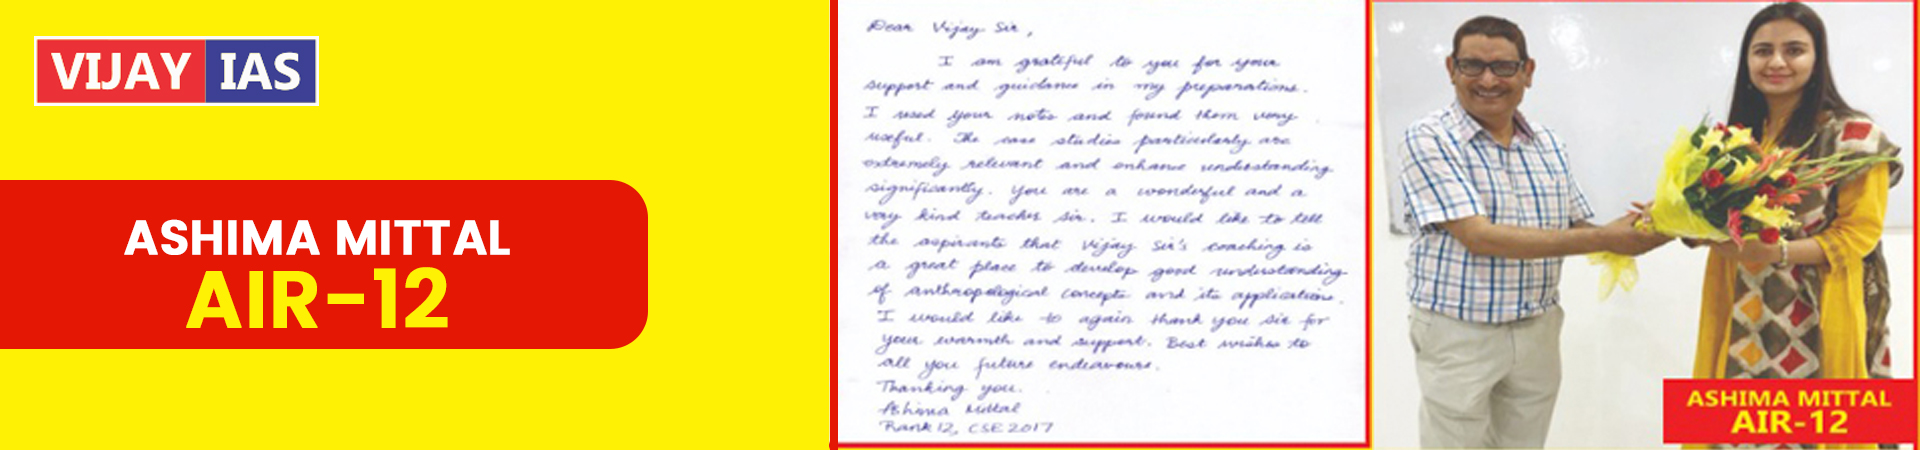 VIJAY IAS
ASHIMA MITTAL
AIR-12
Dear Vijay Sir,
I am grateful to you for your
support and guidance in my preparations.
I used your notes and found them very
useful. The case studies particularly are
extremely relevant and enhance understanding
significantly. You are a wonderful and a
very kind teacher sir. I would like to tell
the aspirants that Vijay Sir's coaching is
a great place to develop good understanding
of anthropological concepts and its applications.
I would like to again thank you sir for
your warmth and support. Best wishes to
all you future endeavours.
Thanking you.
Ashima Mittal
Rank 12, CSE 2017
ASHIMA MITTAL
AIR-12